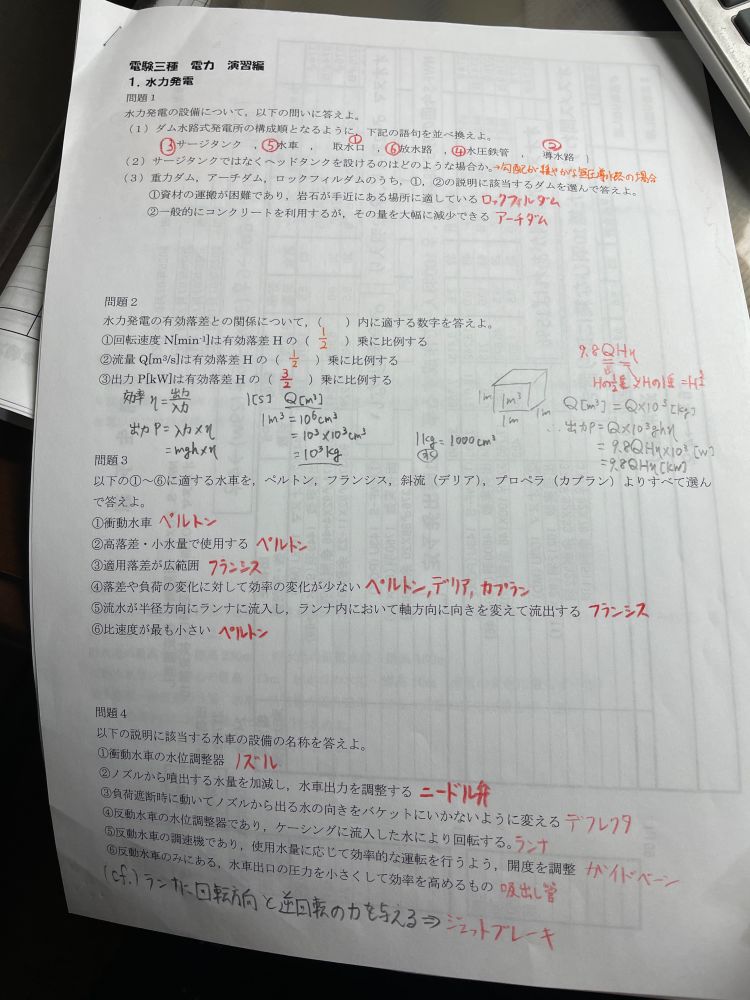 電験三種 電力 演習編
1. 水力発電
問題１
水力発電の設備について，以下の問いに答えよ。
（1）ダム水路式発電所の構成順となるように，下記の語句を並べ換えよ。
③サージタンク ，⑤水車 ， ①取水口 ，⑥放水路 ，④水圧鉄管 ， ②導水路
（2）サージタンクではなくヘッドタンクを設けるのはどのような場合か。→勾配が緩やかな無圧導水路の場合
（3）重力ダム，アーチダム，ロックフィルダムのうち，①，②の説明に該当するダムを選んで答えよ。
①資材の運搬が困難であり，岩石が手近にある場所に適している ロックフィルダム
②一般的にコンクリートを利用するが，その量を大幅に減少できる アーチダム
問題２
水力発電の有効落差との関係について，（ ）内に適する数字を答えよ。
①回転速度 N[min⁻¹]は有効落差 H の（ 1/2 ）乗に比例する
②流量 Q[m³/s]は有効落差 H の（ 1/2 ）乗に比例する
③出力 P[kW]は有効落差 H の（ 3/2 ）乗に比例する
9.8QHη
Hの1/2乗×Hの1乗=H^3/2
効率η=出力/入力
出力P=入力×η
=mgh×η
1[s] Q[m³]
1m³=10⁶cm³
=10³×10³cm³
=10³kg
1kg=1000cm³
(水)
1m³
1m
1m
1m
Q[m³]=Q×10³[kg]
∴出力P=Q×10³ghη
=9.8QHη×10³[w]
=9.8QHη[kw]
問題３
以下の①～⑥に適する水車を，ペルトン，フランシス，斜流（デリア），プロペラ（カプラン）よりすべて選ん
で答えよ。
①衝動水車 ペルトン
②高落差・小水量で使用する ペルトン
③適用落差が広範囲 フランシス
④落差や負荷の変化に対して効率の変化が少ない ペルトン,デリア,カプラン
⑤流水が半径方向にランナに流入し，ランナ内において軸方向に向きを変えて流出する フランシス
⑥比速度が最も小さい ペルトン
問題４
以下の説明に該当する水車の設備の名称を答えよ。
①衝動水車の水位調整器 ノズル
②ノズルから噴出する水量を加減し，水車出力を調整する ニードル弁
③負荷遮断時に動いてノズルから出る水の向きをバケットにいかないように変える デフレクタ
④反動水車の水位調整器であり，ケーシングに流入した水により回転する。ランナ
⑤反動水車の調速機であり，使用水量に応じて効率的な運転を行うよう，開度を調整 ガイドベーン
⑥反動水車のみにある，水車出口の圧力を小さくして効率を高めるもの 吸出し管
(cf.)ランナに回転方向と逆回転の力を与える⇒ジェットブレーキ